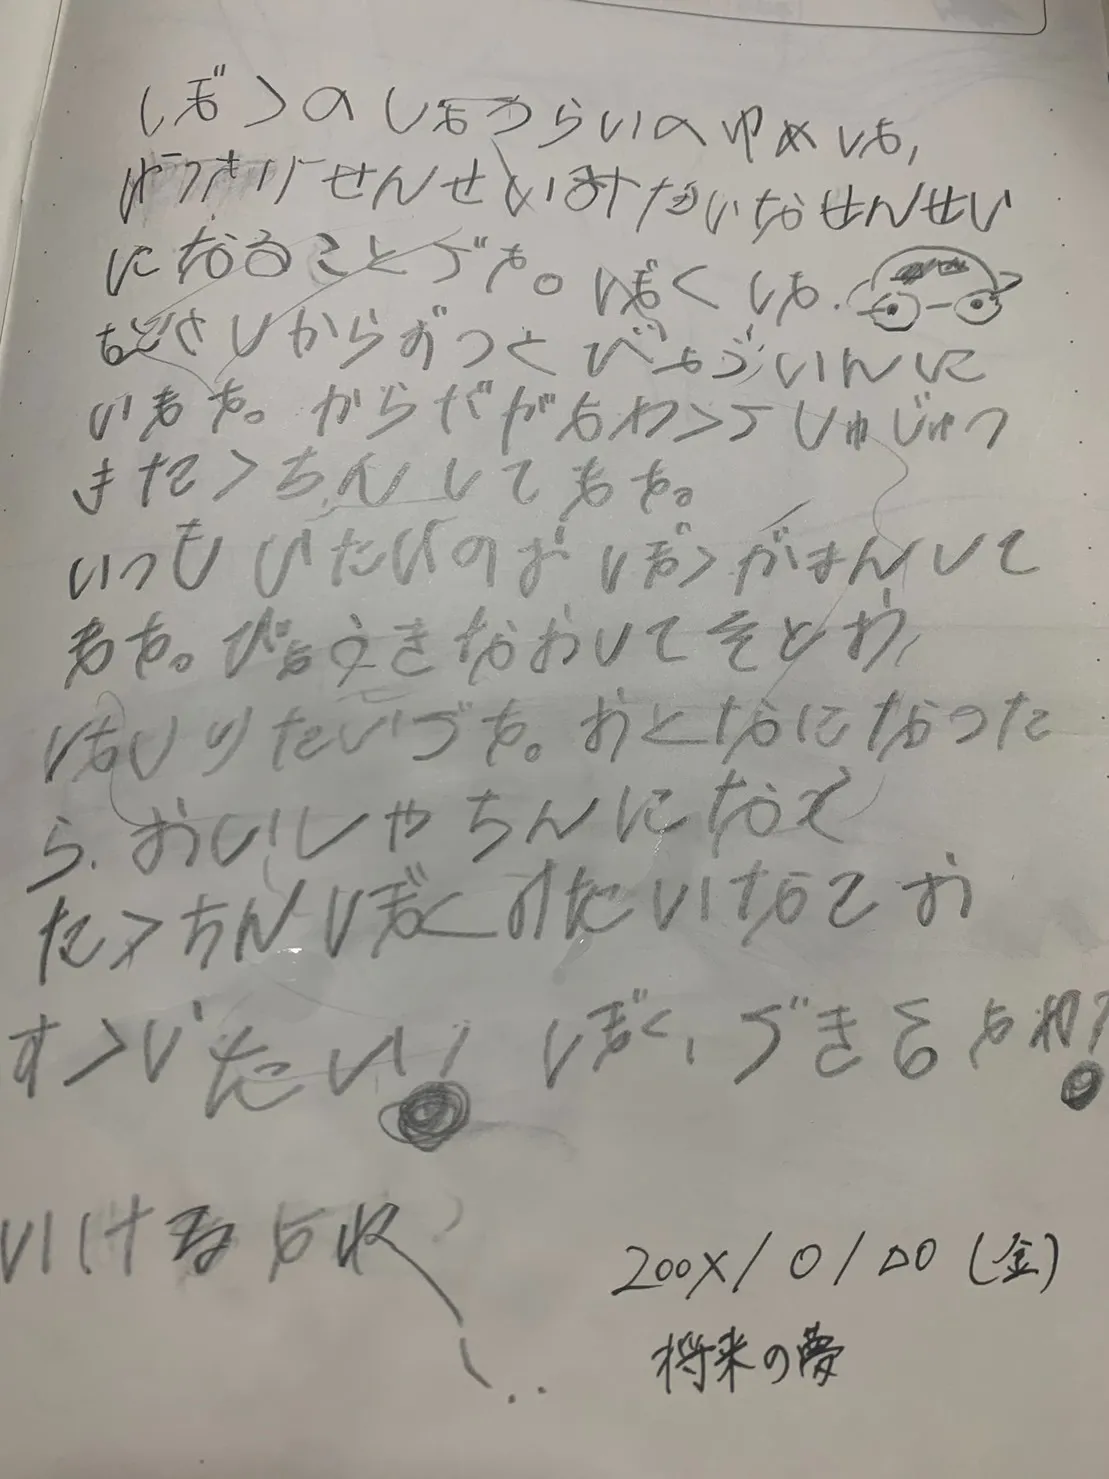 ぼくのしょうらいのゆめは、
ゆうきりせんせいみたいなせんせい
になることです。ぼくは、
おとさしからずっとびょういんに
います。からだがよわくてしゅじゅつ
またくちんしてます。
いつもいたいのおぼくがまんして
ます。びょうきなおしてそとお
はしりたいです。おとなになった
ら、おいしゃちんになて
たくちんぼくみたいなこお
すくいたい!ぼく、できるよね?
いけるよね
200X/0/△0(金)
将来の夢